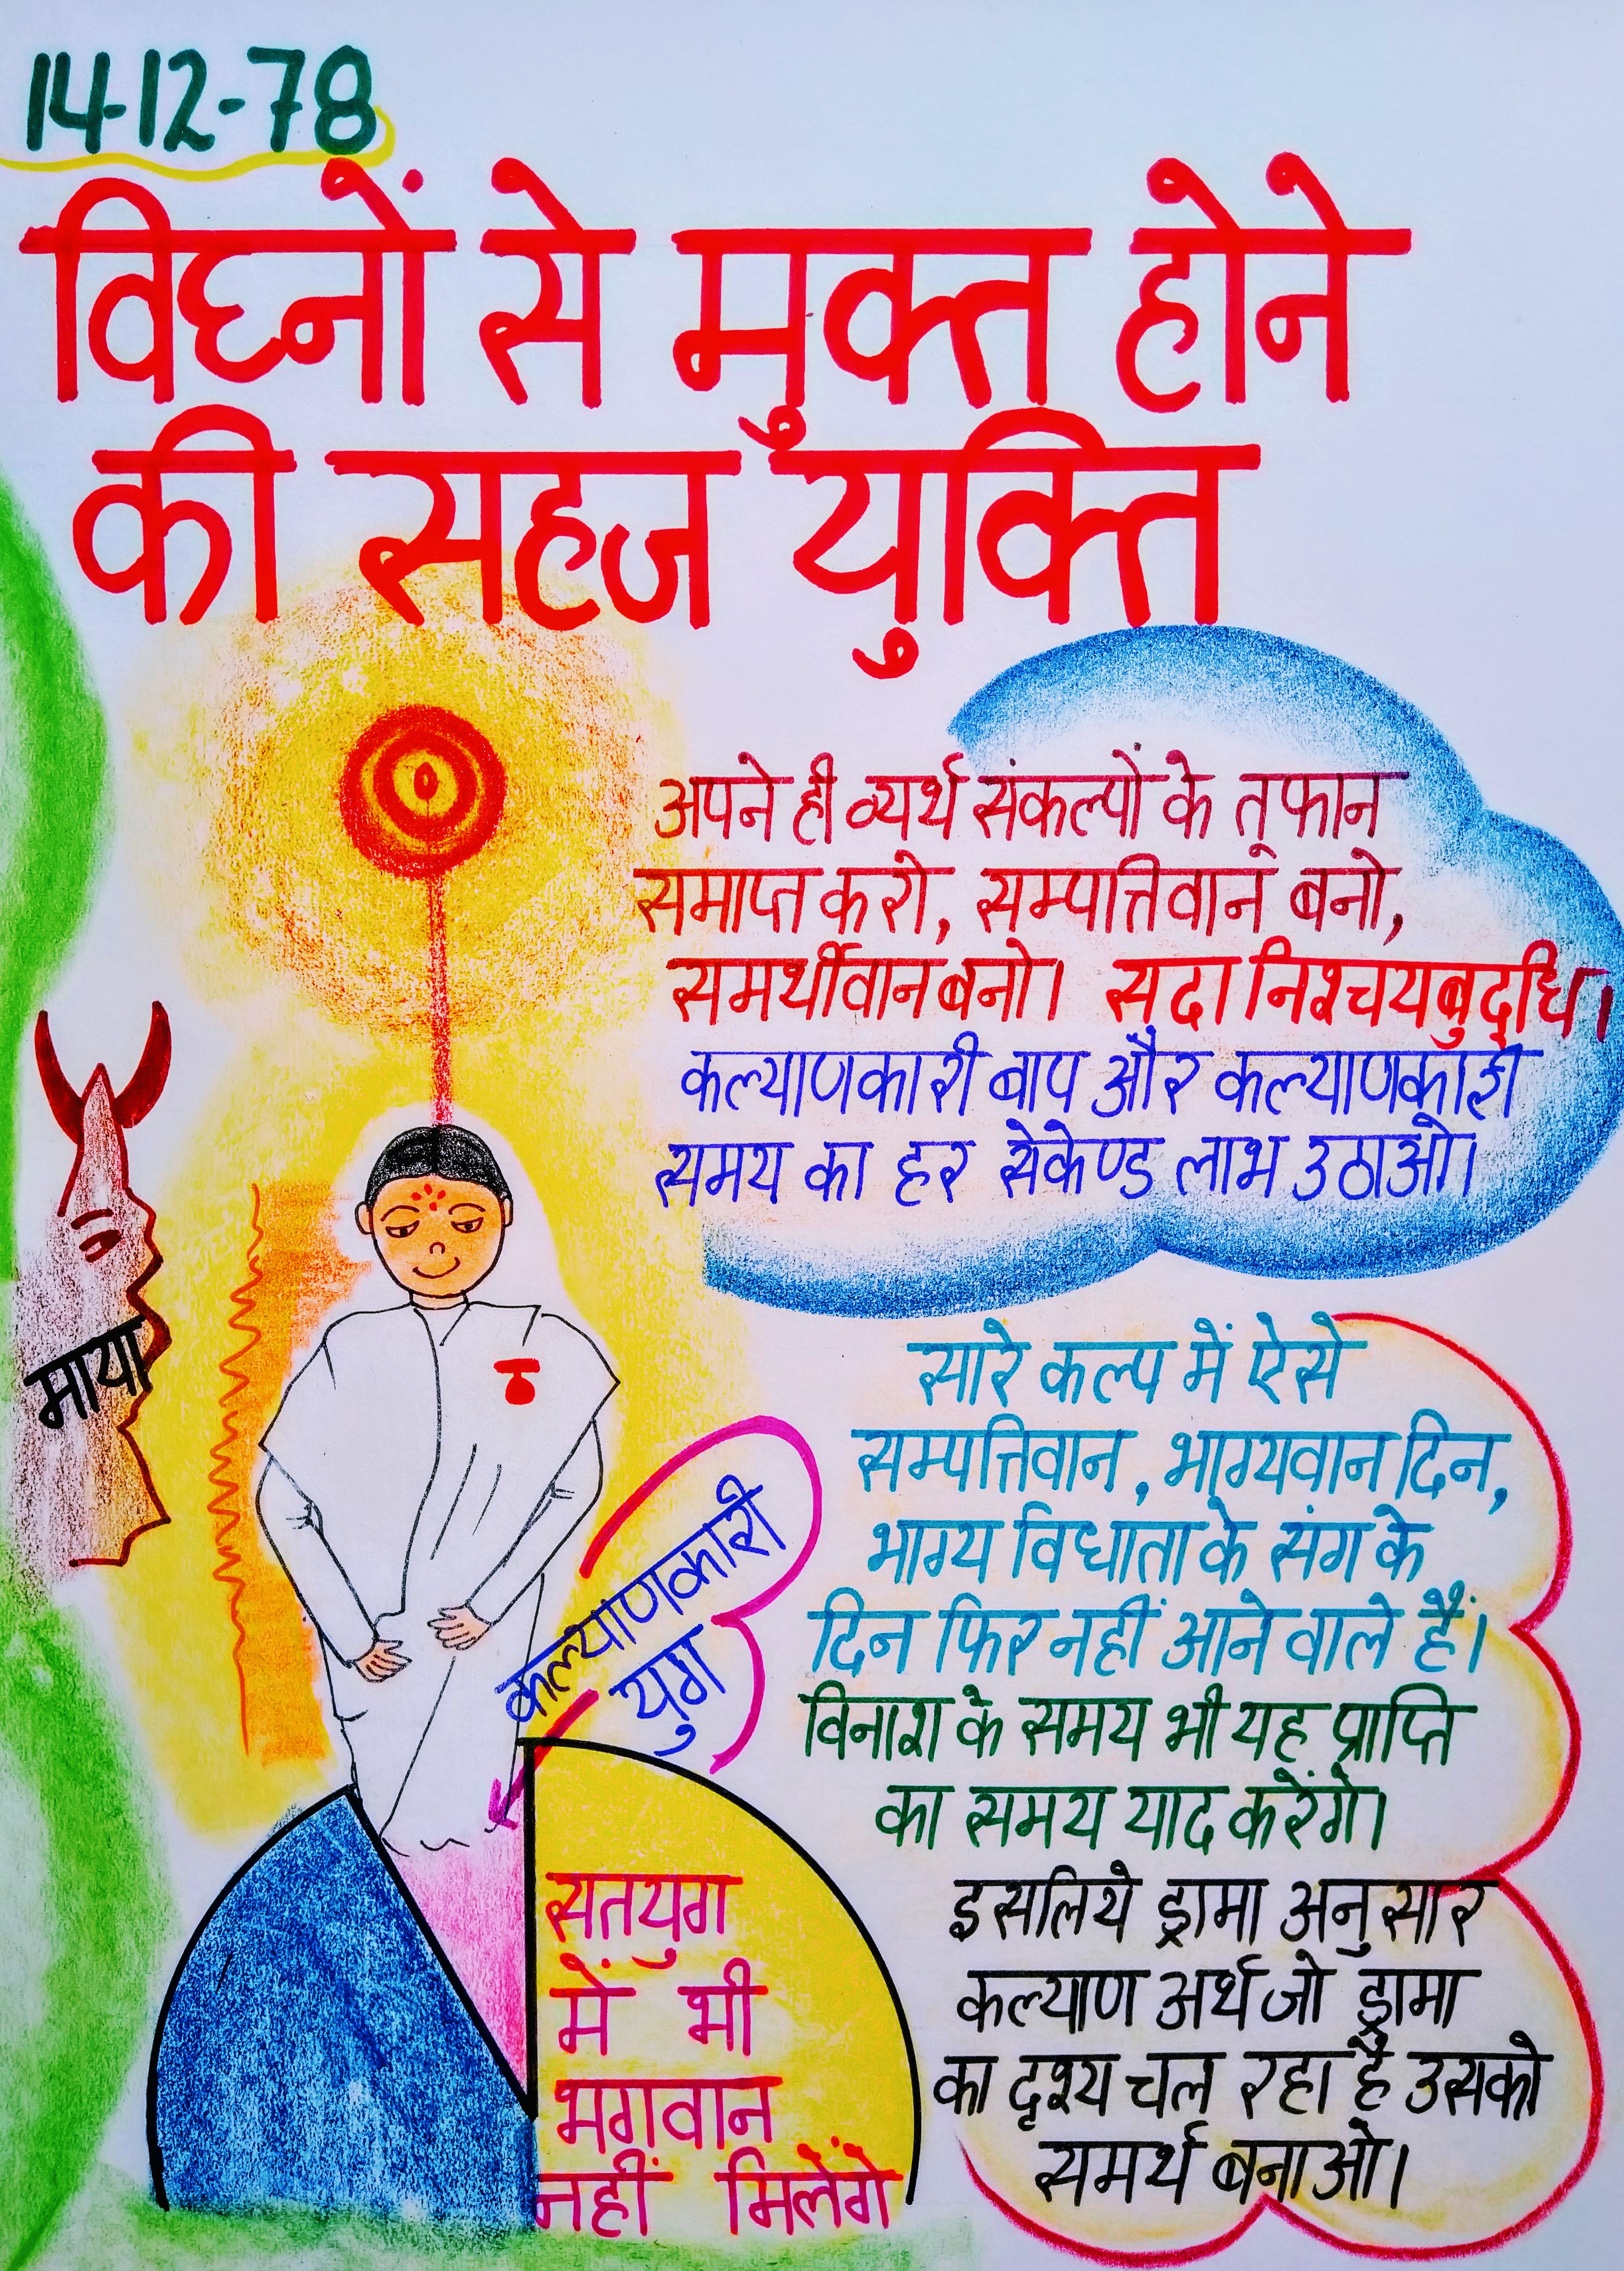 14-12-78
विघ्नों से मुक्त होने
की सहज युक्ति
अपने ही व्यर्थ संकल्पों के तूफान
समाप्त करो, सम्पत्तिवान बनो,
समर्थीवान बनो। सदा निश्चयबुद्धि।
कल्याणकारी बाप और कल्याणकारी
समय का हर सेकेण्ड लाभ उठाओ।
माया
सारे कल्प में ऐसे
सम्पत्तिवान, भाग्यवान दिन,
भाग्य विधाता के संग के
दिन फिर नहीं आने वाले हैं।
विनाश के समय भी यह प्राप्ति
का समय याद करेंगे।
इसलिये ड्रामा अनुसार
कल्याण अर्थ जो ड्रामा
का दृश्य चल रहा है उसको
समर्थ बनाओ।
कल्याणकारी
युग
सतयुग
में भी
भगवान
नहीं मिलेंगे